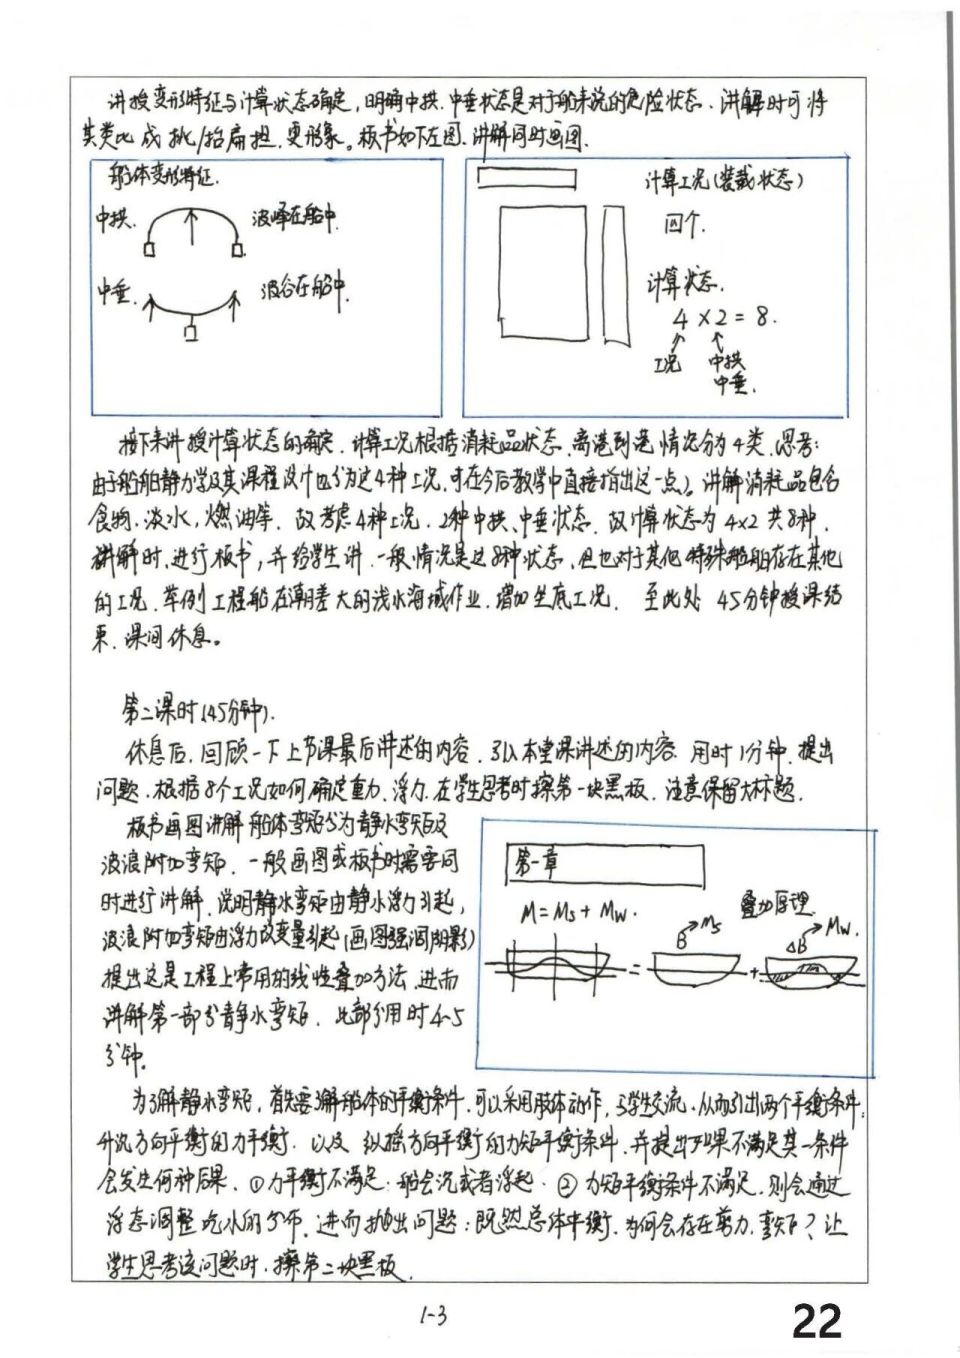 讲授变形特征与计算状态确定，明确中拱、中垂状态是对于船来说的危险状态．讲解时可将
其类比成挑/抬扁担，更形象。板书如下左图．讲解同时画图．
船体变形特征．
中拱．　波峰在船中．
中垂．　波谷在船中．
计算工况（装载状态）
四个．
计算状态．
4×2=8．
工况　中拱
中垂．
接下来讲授计算状态的确定．计算工况根据消耗品状态、离港到港情况分为4类．（思考：
由于船舶静力学及其课程设计也分为这4种工况．可在今后教学中直接指出这一点）．讲解消耗品包含
食物、淡水，燃油等．故考虑4种工况．2种中拱、中垂状态．故计算状态为4×2共8种．
讲解时，进行板书，并给学生讲．一般情况是这8种状态，但也对于其他特殊船舶存在其他
的工况．举例工程船在潮差大的浅水海域作业．增加坐底工况．至此处45分钟授课结
束．课间休息。
第二课时（45分钟）．
休息后，回顾一下上节课最后讲述的内容．引入本堂课讲述的内容．用时1分钟．提出
问题．根据8个工况如何确定重力、浮力．在学生思考时擦第一块黑板．注意保留大标题．
板书画图讲解船体弯矩分为静水弯矩及
波浪附加弯矩．一般画图或板书时需要同
时进行讲解．说明静水弯矩由静水浮力引起，
波浪附加弯矩由浮力改变量引起（画图强调阴影）
提出这是工程上常用的线性叠加方法．进而
讲解第一部分静水弯矩．此部分用时4~5
分钟．
第一章
M=Ms+Mw．　叠加原理
B　Ms　ΔB　Mw．
=　+
为了解静水弯矩，首先要了解船体的平衡条件．可以采用肢体动作，与学生交流．从而引出两个平衡条件：
升沉方向平衡的力平衡．以及纵摇方向平衡的力矩平衡条件．并提出如果不满足某一条件
会发生何种后果．①力平衡不满足：船会沉或者浮起．②力矩平衡条件不满足．则会通过
浮态调整吃水的分布．进而抛出问题：既然总体平衡．为何会存在剪力、弯矩？让
学生思考该问题时．擦第二块黑板．
1-3
22